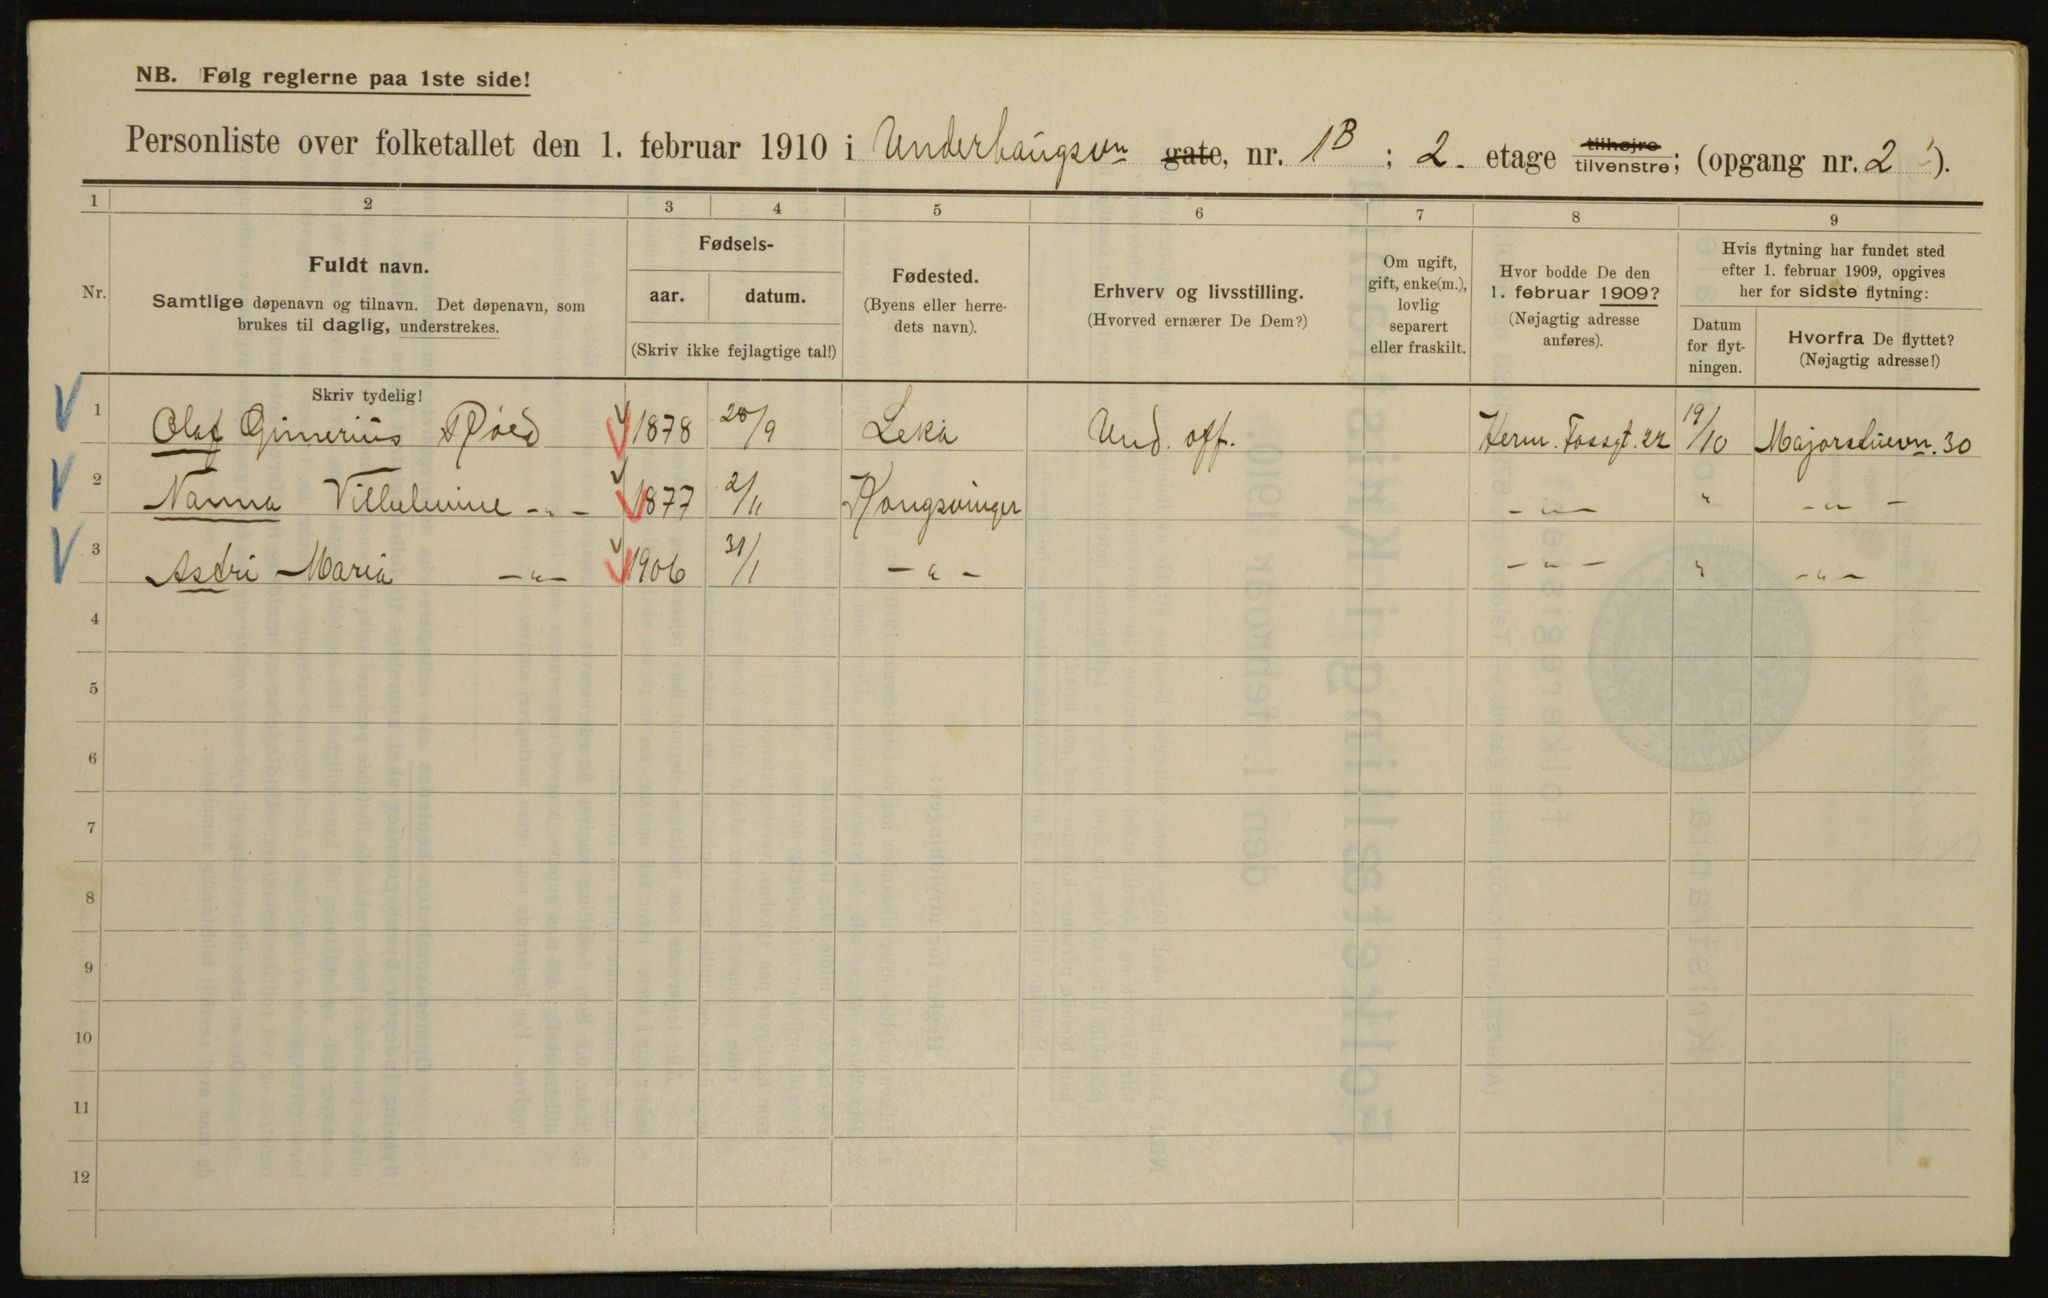 NB. Følg reglerne paa 1ste side!
Personliste over folketallet den 1. februar 1910 i Underhaugsvn gate, nr. 1B ; 2. etage tilhøjre tilvenstre; (opgang nr. 2 ).
1 2 3 4 5 6 7 8 9
Nr.
Fuldt navn.
Samtlige døpenavn og tilnavn. Det døpenavn, som
brukes til daglig, understrekes.
Fødsels-
aar. datum.
(Skriv ikke fejlagtige tal!)
Fødested.
(Byens eller herre-
dets navn).
Erhverv og livsstilling.
(Hvorved ernærer De Dem?)
Om ugift,
gift, enke(m.),
lovlig
separert
eller fraskilt.
Hvor bodde De den
1. februar 1909?
(Nøjagtig adresse
anføres).
Hvis flytning har fundet sted
efter 1. februar 1909, opgives
her for sidste flytning:
Datum
for flyt-
ningen.
Hvorfra De flyttet?
(Nøjagtig adresse!)
Skriv tydelig!
1 Olaf Røed 1878 28/9 Leka Und. off. Herm. Fossgt. 22 19/10 Majorstuevn. 30
2 Nanna Vilhelmine -"- 1877 2/11 Kongsvinger -"- " -"-
3 Astri Maria -"- 1906 31/1 -"- -"- " -"-
4
5
6
7
8
9
10
11
12